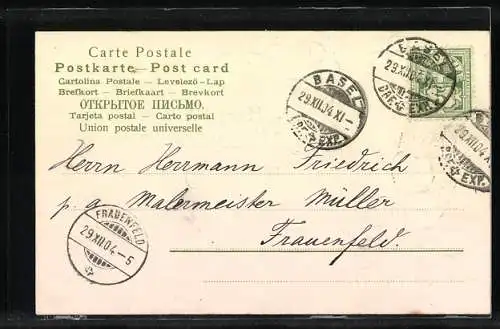 Carte Postale
Postkarte — Post card
Cartolina Postale — Levelező-Lap
Brefkort — Briefkaart — Brevkort
ОТКРЫТОЕ ПИСЬМО.
Tarjeta postal — Carto postal
Union postale universelle
BASEL
29.XII.04.XI–
BRF. EXP.
BASEL
29.XII.04
BRF. EXP.
29.XII.04
EXP.
Herrn Herrmann Friedrich
p. a Malermeister Müller
Frauenfeld.
FRAUENFELD
29.XII.04–5